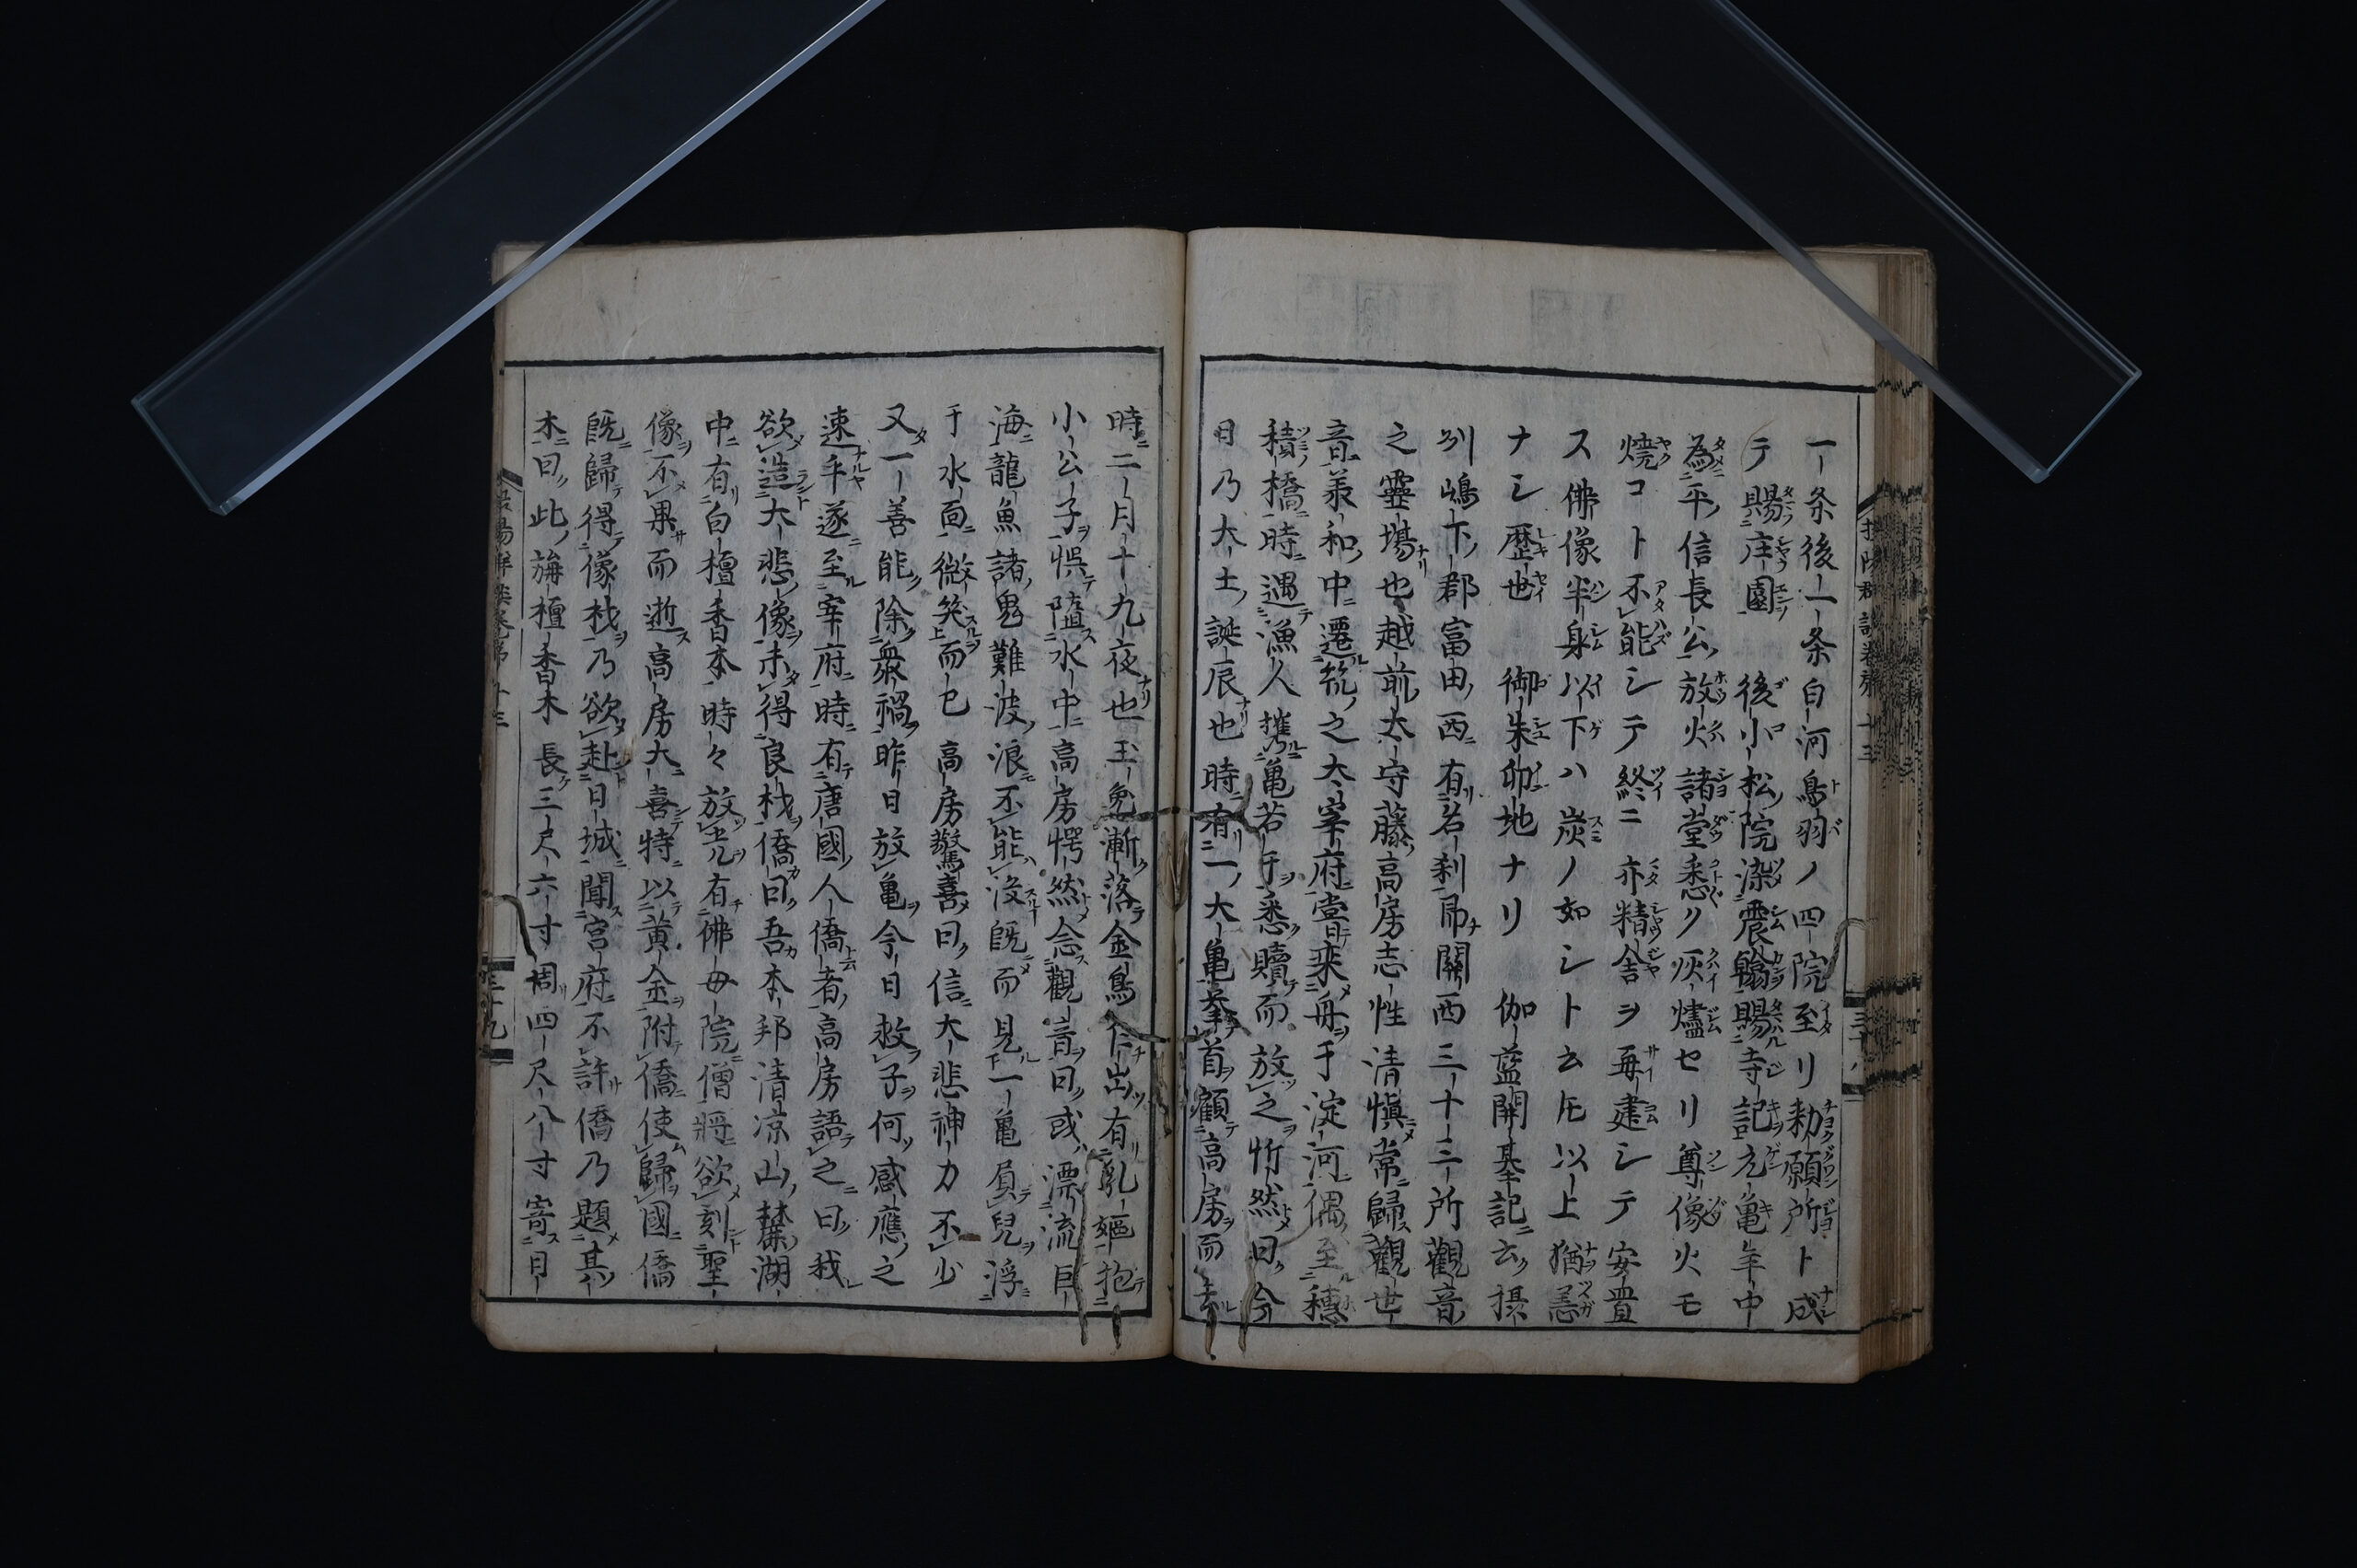 一条後一条白河鳥羽ノ四院至リ勅願所ト成
テ賜庄園後小松院染震翰賜寺記元亀年中
為平信長公放火諸堂悉ク灰燼セリ尊像火モ
焼コト不能シテ終ニ亦精舎ヲ再建シテ安置
ス佛像半身以下ハ炭ノ如シト云𪜈以上猶
ナシ歴世御朱印地ナリ伽藍開基記云摂
州嶋下郡富田西有名刹帛關西三十三所觀音
之靈場也越前太守藤高房志性清慎常歸觀世
音義和中遷筑之大宰府嘗乘舟于淀河偶至穗
積橋時遇漁人携亀若干悉贖而放之忻然曰今
日乃大士誕辰也時有一大亀挙首顧高房而去
時二月十九夜也玉兔漸落金烏乍出有乳嫗抱
小公子悞墮水中高房愕然念觀音曰或漂流巨
海龍魚諸鬼難波浪不能没既而見一亀負兒浮
于水面微笑而已高房驚喜曰信大悲神力不少
又一善能除衆禍昨日放亀今日救子何感應之
速乎遂至宰府時有唐國人僑者高房語之曰我
欲造大悲像未得良材僑曰吾本邦清凉山麓湖
中有白檀香木時々放光有佛母院僧將欲刻聖
像不果而逝高房大喜特以黄金附僑使歸國僑
既歸得像材乃欲赴日城聞宮府不許僑乃題其
木曰此旃檀香木長三尺六寸周四尺八寸寄日
三十九